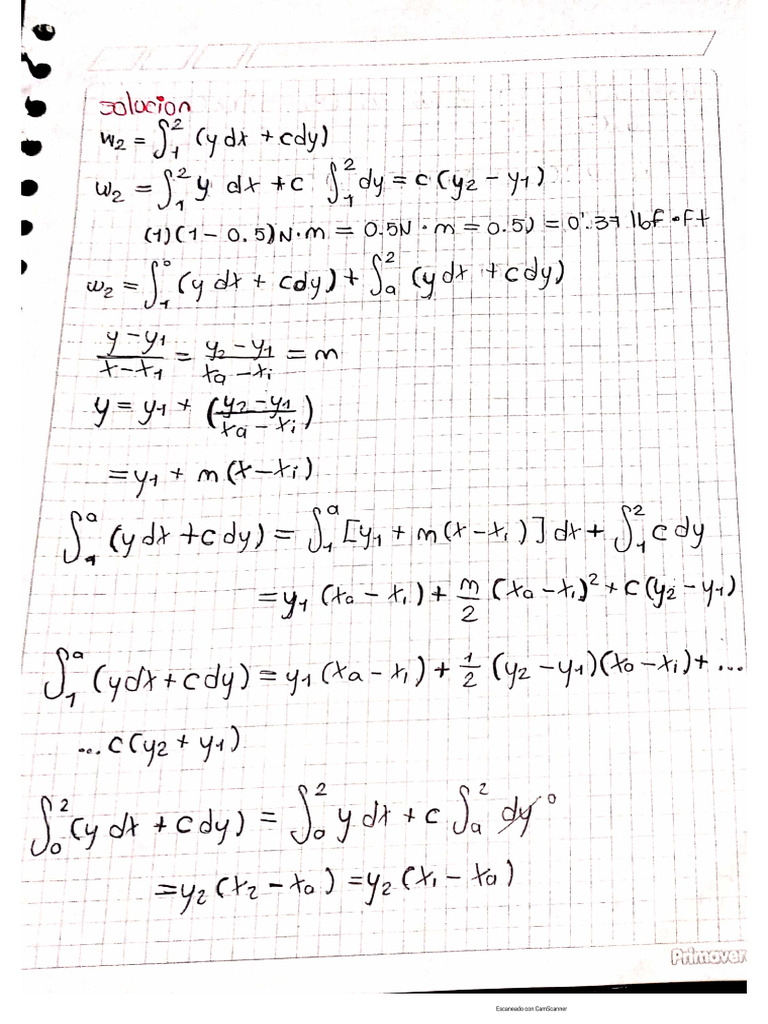 solucion
w₂ = ∫₁² (y dx + c dy)
w₂ = ∫₁² y dx + c ∫₁² dy = c (y₂ - y₁)
(1)(1 - 0.5)N·m = 0.5N·m = 0.5J = 0'.37 lbf·ft
w₂ = ∫₁⁰ (y dx + c dy) + ∫ₐ² (y dx + c dy)
(y - y₁)/(x - x₁) = (y₂ - y₁)/(xₐ - xᵢ) = m
y = y₁ + ((y₂ - y₁)/(xₐ - xᵢ))
= y₁ + m(x - xᵢ)
∫₁ᵃ (y dx + c dy) = ∫₁ᵃ [y₁ + m(x - xᵢ)] dx + ∫₁² c dy
= y₁ (xₐ - xᵢ) + m/2 (xₐ - xᵢ)² + c(y₂ - y₁)
∫₁ᵃ (y dx + c dy) = y₁ (xₐ - xᵢ) + 1/2 (y₂ - y₁)(x₀ - xᵢ) + ...
... c(y₂ + y₁)
∫₀² (y dx + c dy) = ∫₀² y dx + c ∫ₐ² dy⁰
= y₂ (x₂ - xₐ) = y₂ (xᵢ - xₐ)
Primaver
Escaneado con CamScanner